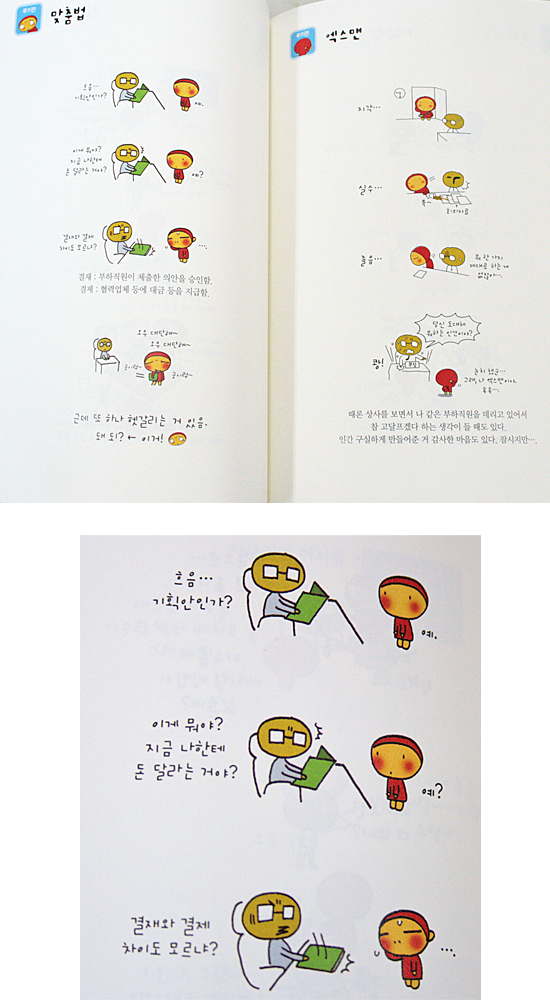 루키판
맞춤법
흐음…
기획안인가?
예.
이게 뭐야?
지금 나한테
돈 달라는 거야?
예?
결재와 결제
차이도 모르냐?
….
결재 : 부하직원이 제출한 의안을 승인함.
결제 : 협력업체 등에 대금 등을 지급함.
오우 대단해~
오우 대단해~
근데 또 하나 헷갈리는 거 있음.
돼 되? ← 이거!
엑스맨
지각…
실수…
졸음…
뭐 한 가지
제대로 하는 게
없잖아…
당신 도대체
뭐하는 인간이야?
쾅!
눈치 챘군…
그래, 나 엑스맨이야.
흐흐…
때론 상사를 보면서 나 같은 부하직원을 데리고 있어서
참 고달프겠다 하는 생각이 들 때도 있다.
인간 구실하게 만들어준 거 감사한 마음도 있다. 잠시지만….
흐음…
기획안인가?
예.
이게 뭐야?
지금 나한테
돈 달라는 거야?
예?
결재와 결제
차이도 모르냐?
….